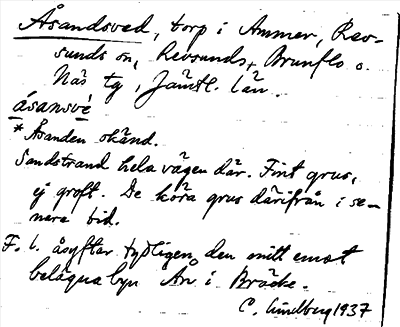 Åsandsved, torp i Ammer, Rev-
sunds sn, Revsunds, Brunflo o.
Näs tg, Jämtl. län.
åsansvé
*Åsanden okänd.
Sandstrand hela vägen där. Fint grus,
ej groft. De köra grus därifrån i se-
nare tid.
F. l. åsyftar tydligen den mitt emot
belägna byn An. i Bräcke.
C. Lindberg 1937